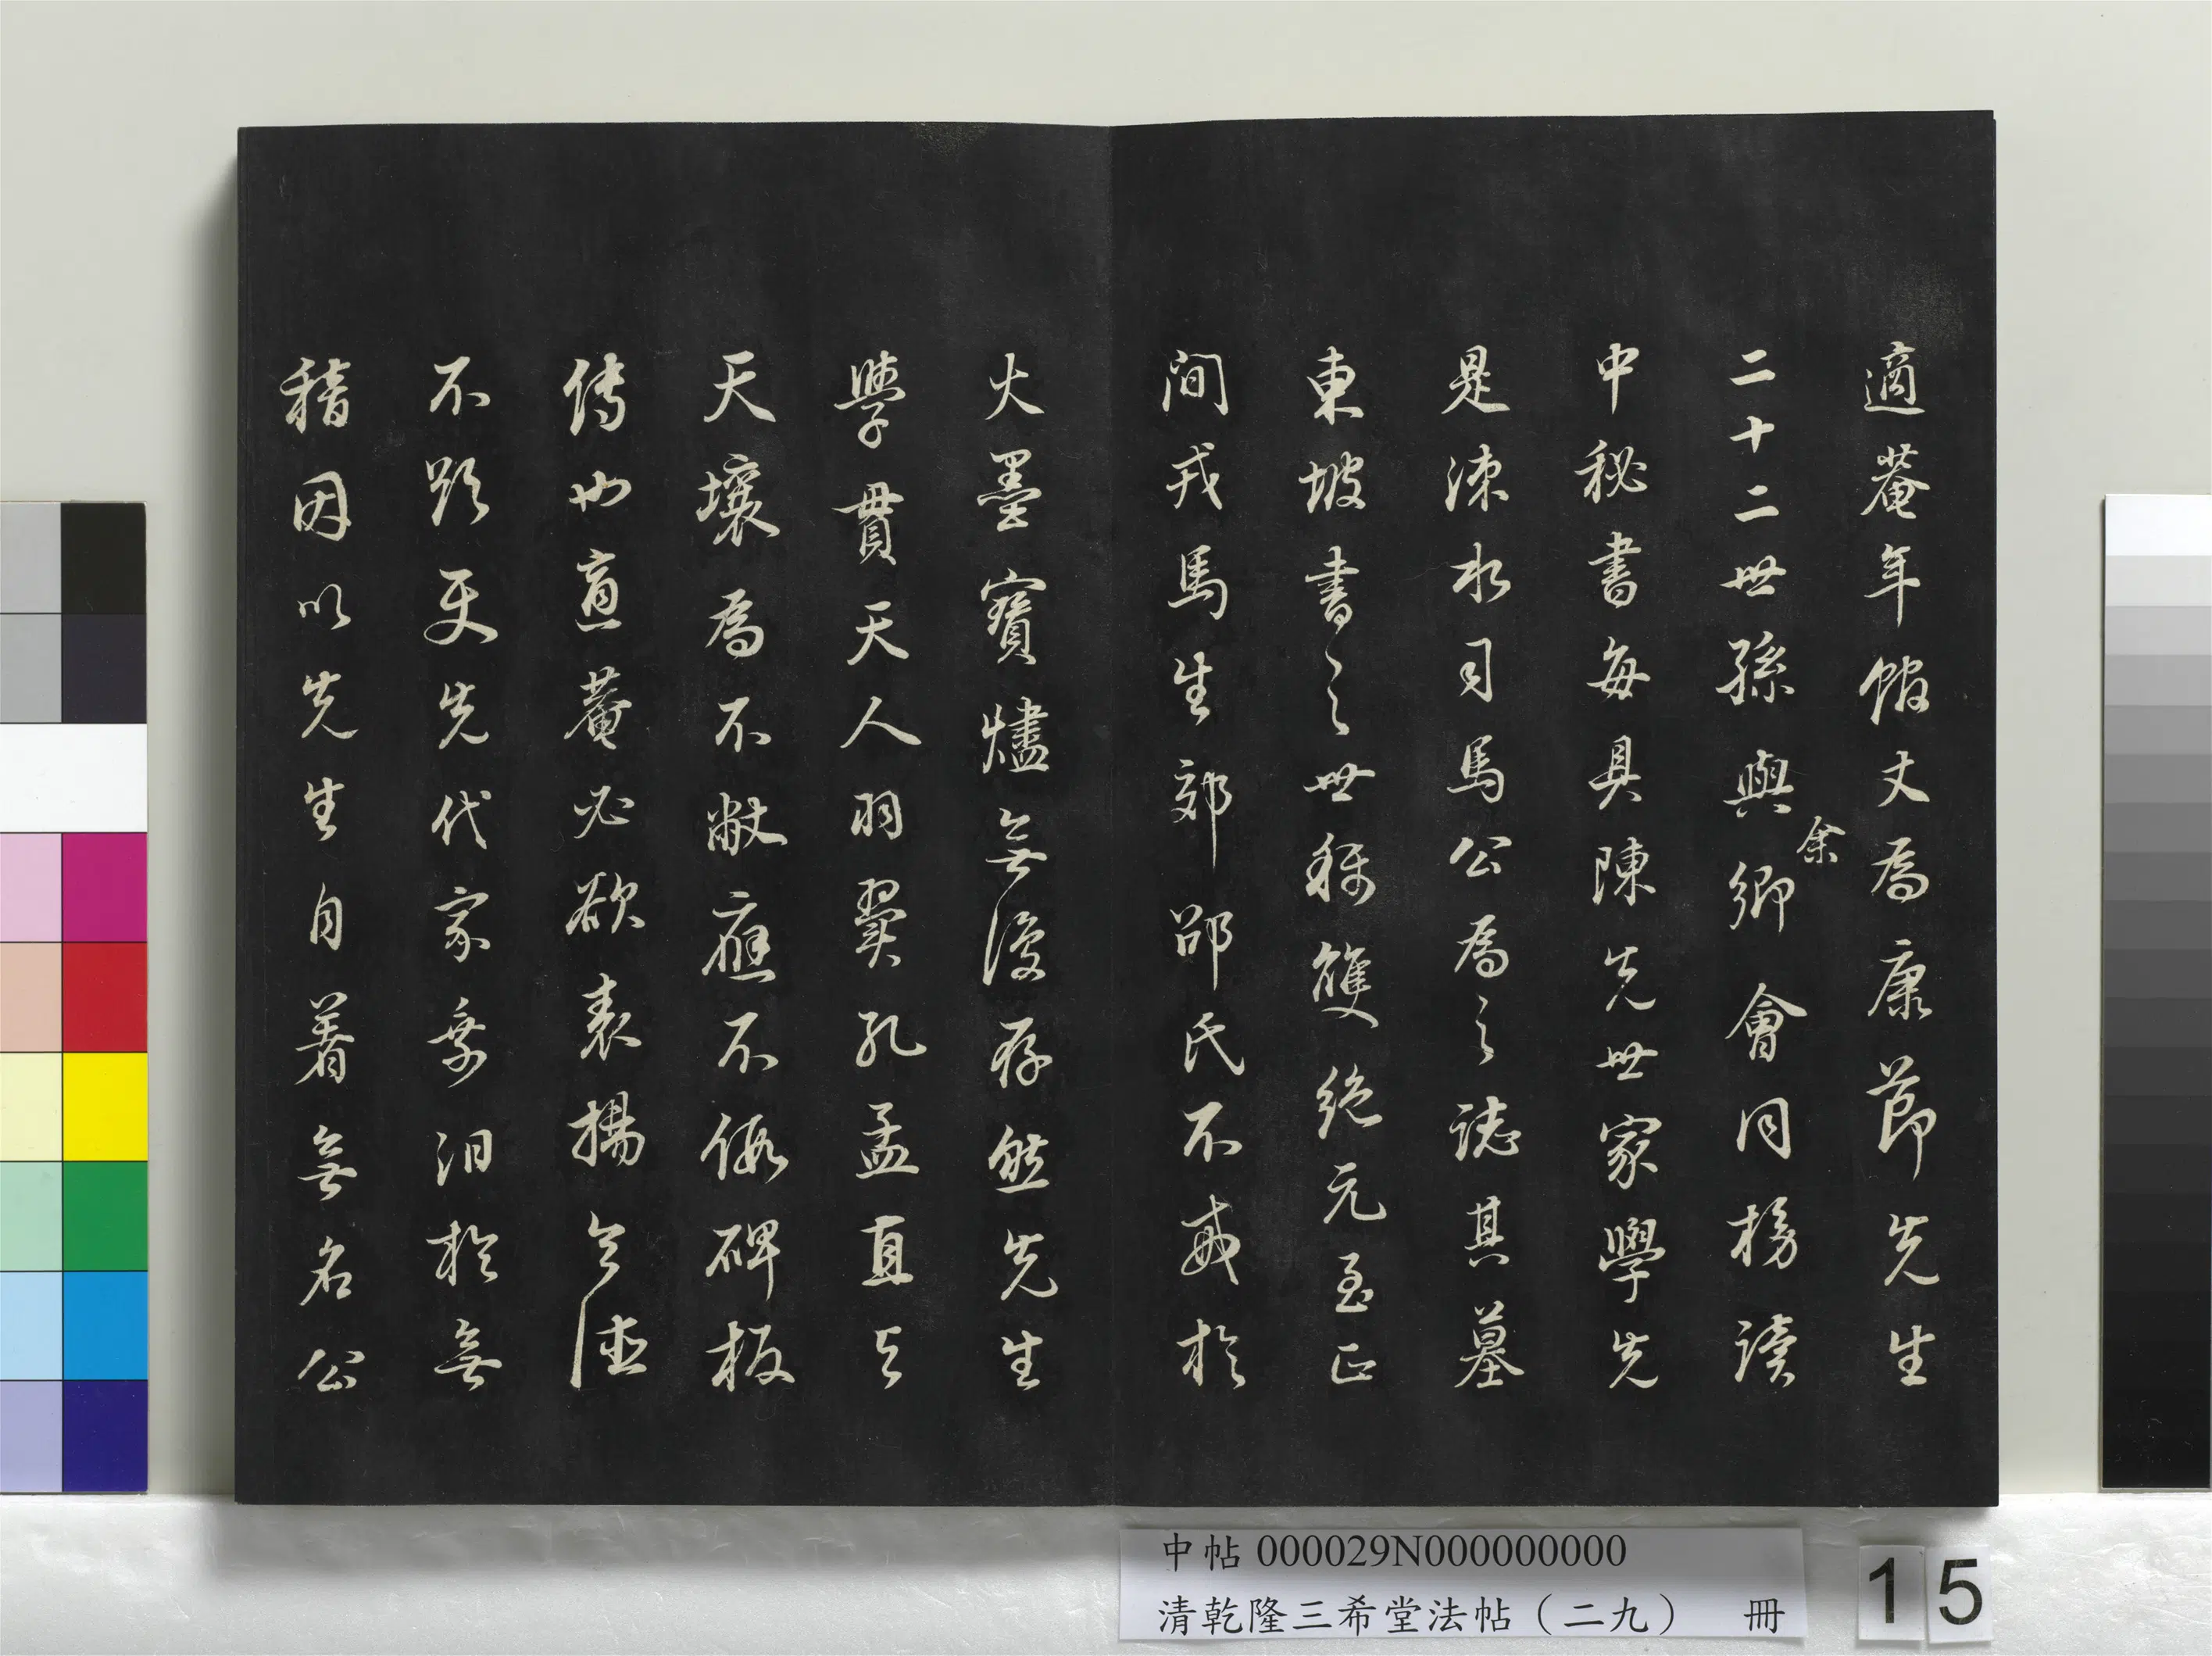 適菴年館丈為康節先生
二十二世孫與余卿會同榜讀
中秘書每具陳先世家學先
是涑水司馬公為之誌其墓
東坡書之之世稱雙絕元至正
間戎馬生郊邵氏不戒於
火墨寶燼無復存然先生
學貫天人羽翼孔孟直與
天壤為不敝應不假碑板
傳也適菴必欲表揚令德
不難更先代家乘汨於無
稽因以先生自著無名公
中帖000029N000000000
清乾隆三希堂法帖(二九) 冊
15